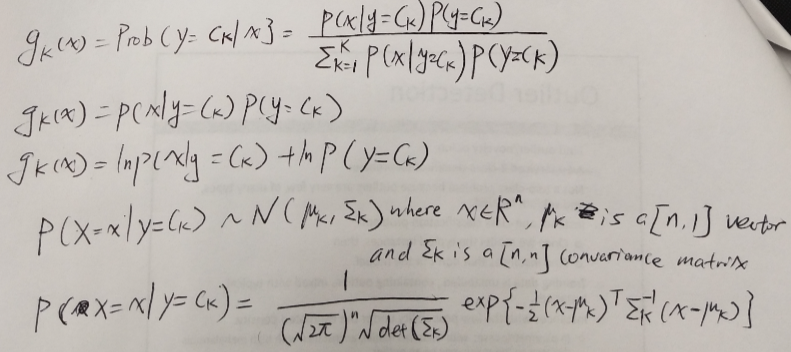 g_K(x) = Prob(y = C_K | x} = P(x|y=C_K)P(y=C_K) / Σ_{k=1}^{K} P(x|y=C_K)P(y=C_K)
g_K(x) = p(x|y=C_K) P(y=C_K)
g_K(x) = ln p(x|y=C_K) + ln P(y=C_K)
P(X=x|y=C_K) ~ N(μ_K, Σ_K) where x∈R^n, μ_K is a [n,1] vector
and Σ_K is a [n,n] convariance matrix
P(X=x|y=C_K) = 1 / ((√2π)^n √det(Σ_K)) exp{-1/2 (x-μ_K)^T Σ_K^{-1} (x-μ_K)}